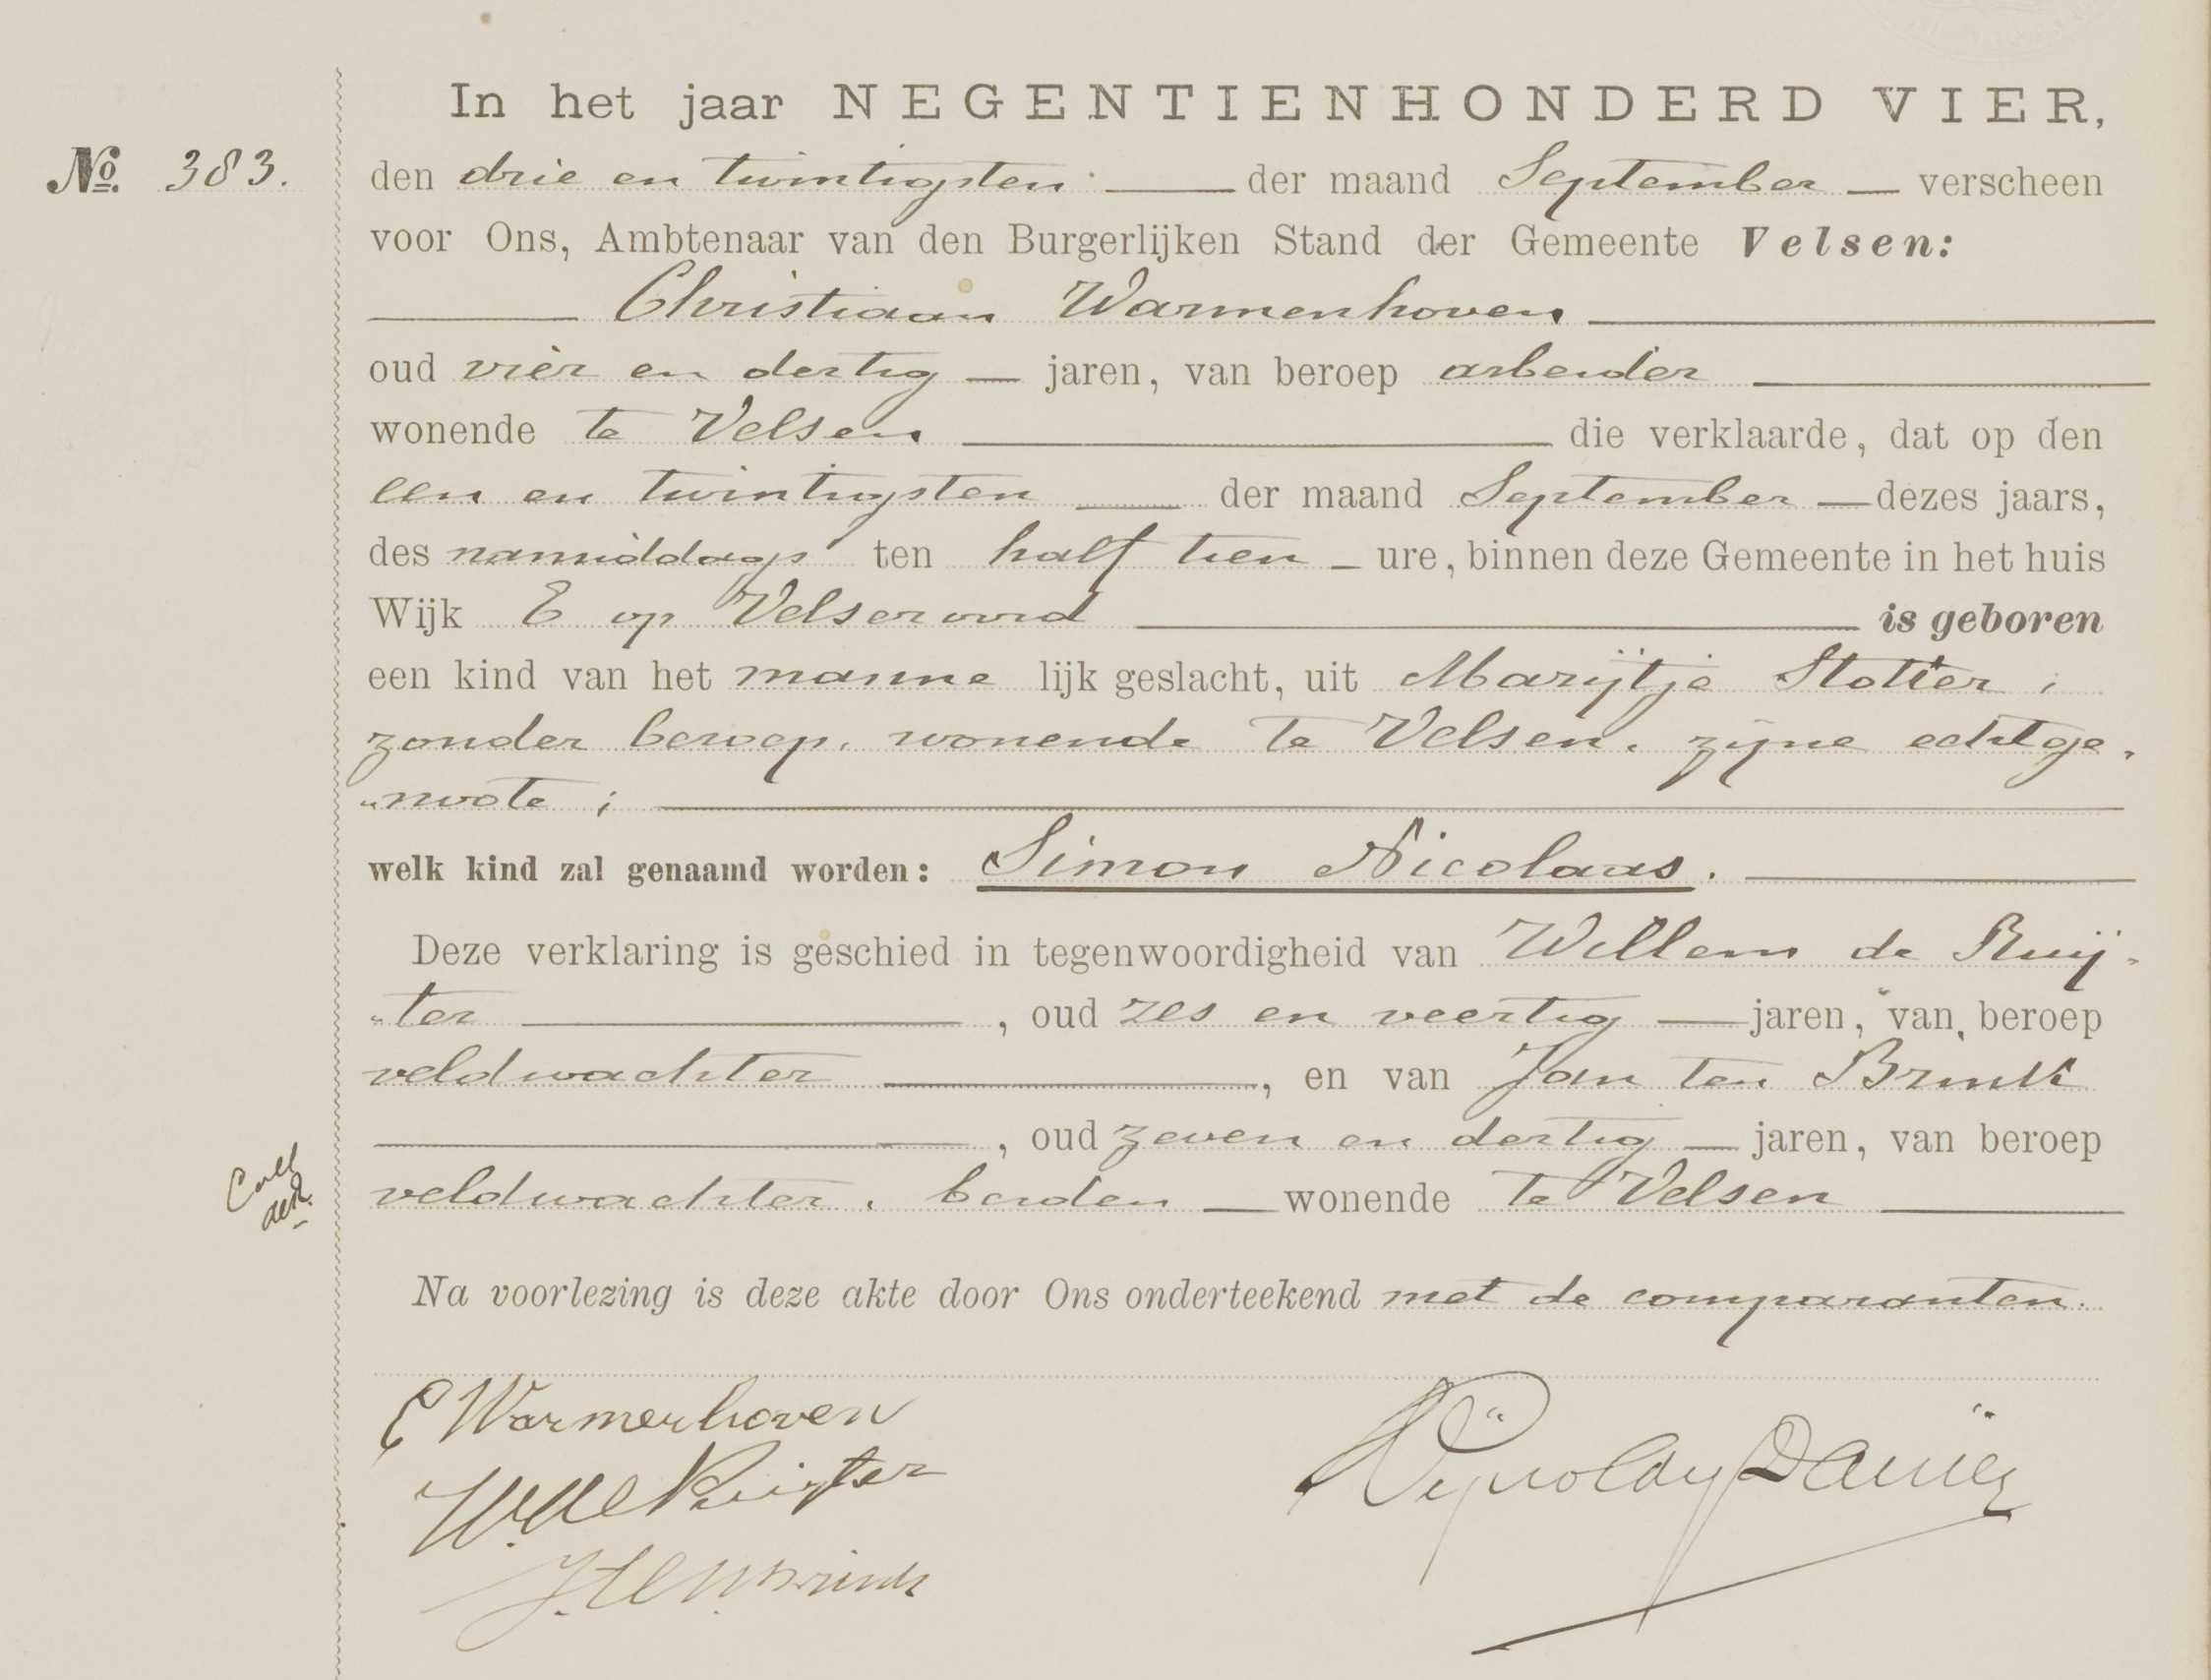 In het jaar NEGENTIENHONDERD VIER,
No. 383.
den drie en twintigsten der maand September verscheen
voor Ons, Ambtenaar van den Burgerlijken Stand der Gemeente Velsen:
Christiaan Warmenhoven
oud vier en dertig jaren, van beroep arbeider
wonende te Velsen die verklaarde, dat op den
een en twintigsten der maand September dezes jaars,
des namiddags ten half tien ure, binnen deze Gemeente in het huis
Wijk E op Velseroord is geboren
een kind van het manne lijk geslacht, uit Marijtje Stolter,
zonder beroep, wonende te Velsen, zijne echtge-
"noote;
welk kind zal genaamd worden: Simon Nicolaas.
Deze verklaring is geschied in tegenwoordigheid van Willem de Ruij-
"ter, oud zes en veertig jaren, van beroep
veldwachter, en van Jan ten Brink
, oud zeven en dertig jaren, van beroep
veldwachter, beiden wonende te Velsen
Na voorlezing is deze akte door Ons onderteekend met de comparanten.
C Warmerhoven
W de Ruijter
J. ten Brink